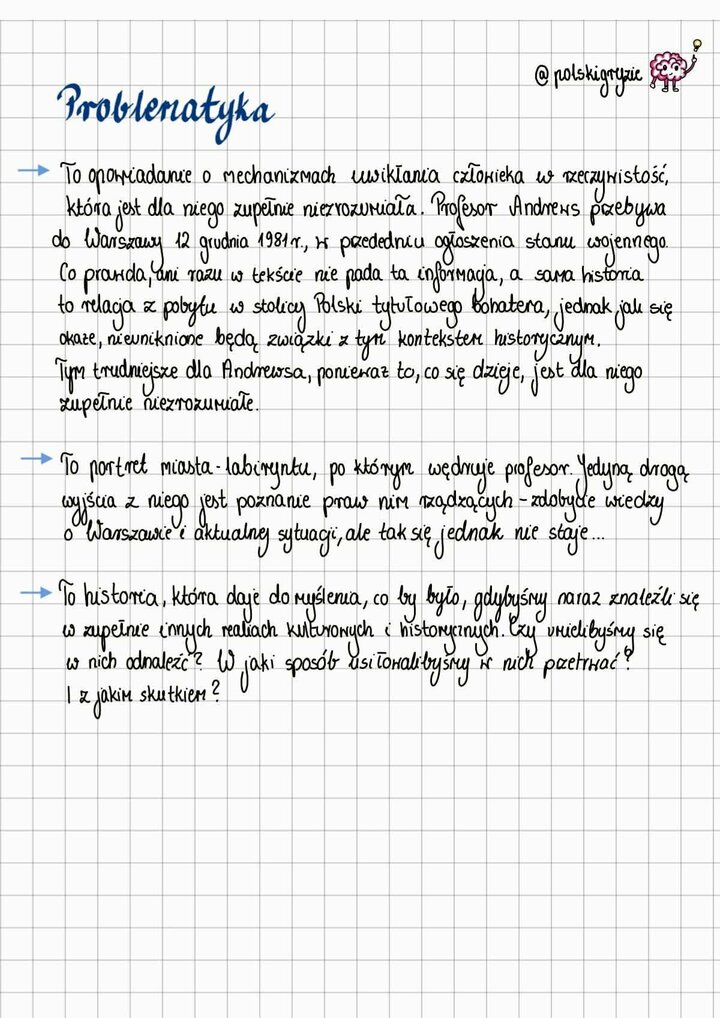 @polskigryzie
Problematyka
→ To opowiadanie o mechanizmach uwikłania człowieka w rzeczywistość,
która jest dla niego zupełnie niezrozumiała. Profesor Andrews przebywa
do Warszawy 12 grudnia 1981 r., w przededniu ogłoszenia stanu wojennego.
Co prawda, ani razu w tekście nie pada ta informacja, a sama historia
to relacja z pobytu w stolicy Polski tytułowego bohatera, jednak jak się
okaże, nieuniknione będą związki z tym kontekstem historycznym.
Tym trudniejsze dla Andrewsa, ponieważ to, co się dzieje, jest dla niego
zupełnie niezrozumiałe.
→ To portret miasta-labiryntu, po którym wędruje profesor. Jedyną drogą
wyjścia z niego jest poznanie praw nim rządzących - zdobycie wiedzy
o Warszawie i aktualnej sytuacji, ale tak się jednak nie staje...
→ To historia, która daje do myślenia, co by było, gdybyśmy naraz znaleźli się
w zupełnie innych realiach kulturowych i historycznych. Czy umielibyśmy się
w nich odnaleźć? W jaki sposób usiłowalibyśmy w nich przetrwać?
I z jakim skutkiem?